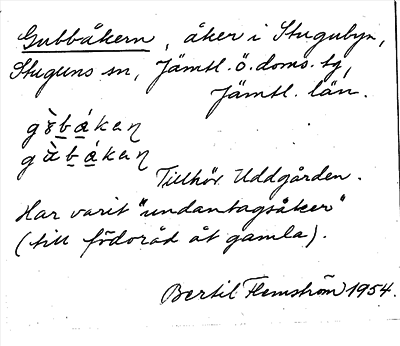 Gubbåkern, åker i Stugubyn,
Stuguns sn, Jämtl. ö. doms. tg,
Jämtl. län.
Tillhör Uddgården.
Har varit "undantagsåker"
(till födoråd åt gamla).
Bertil Flemström 1954.